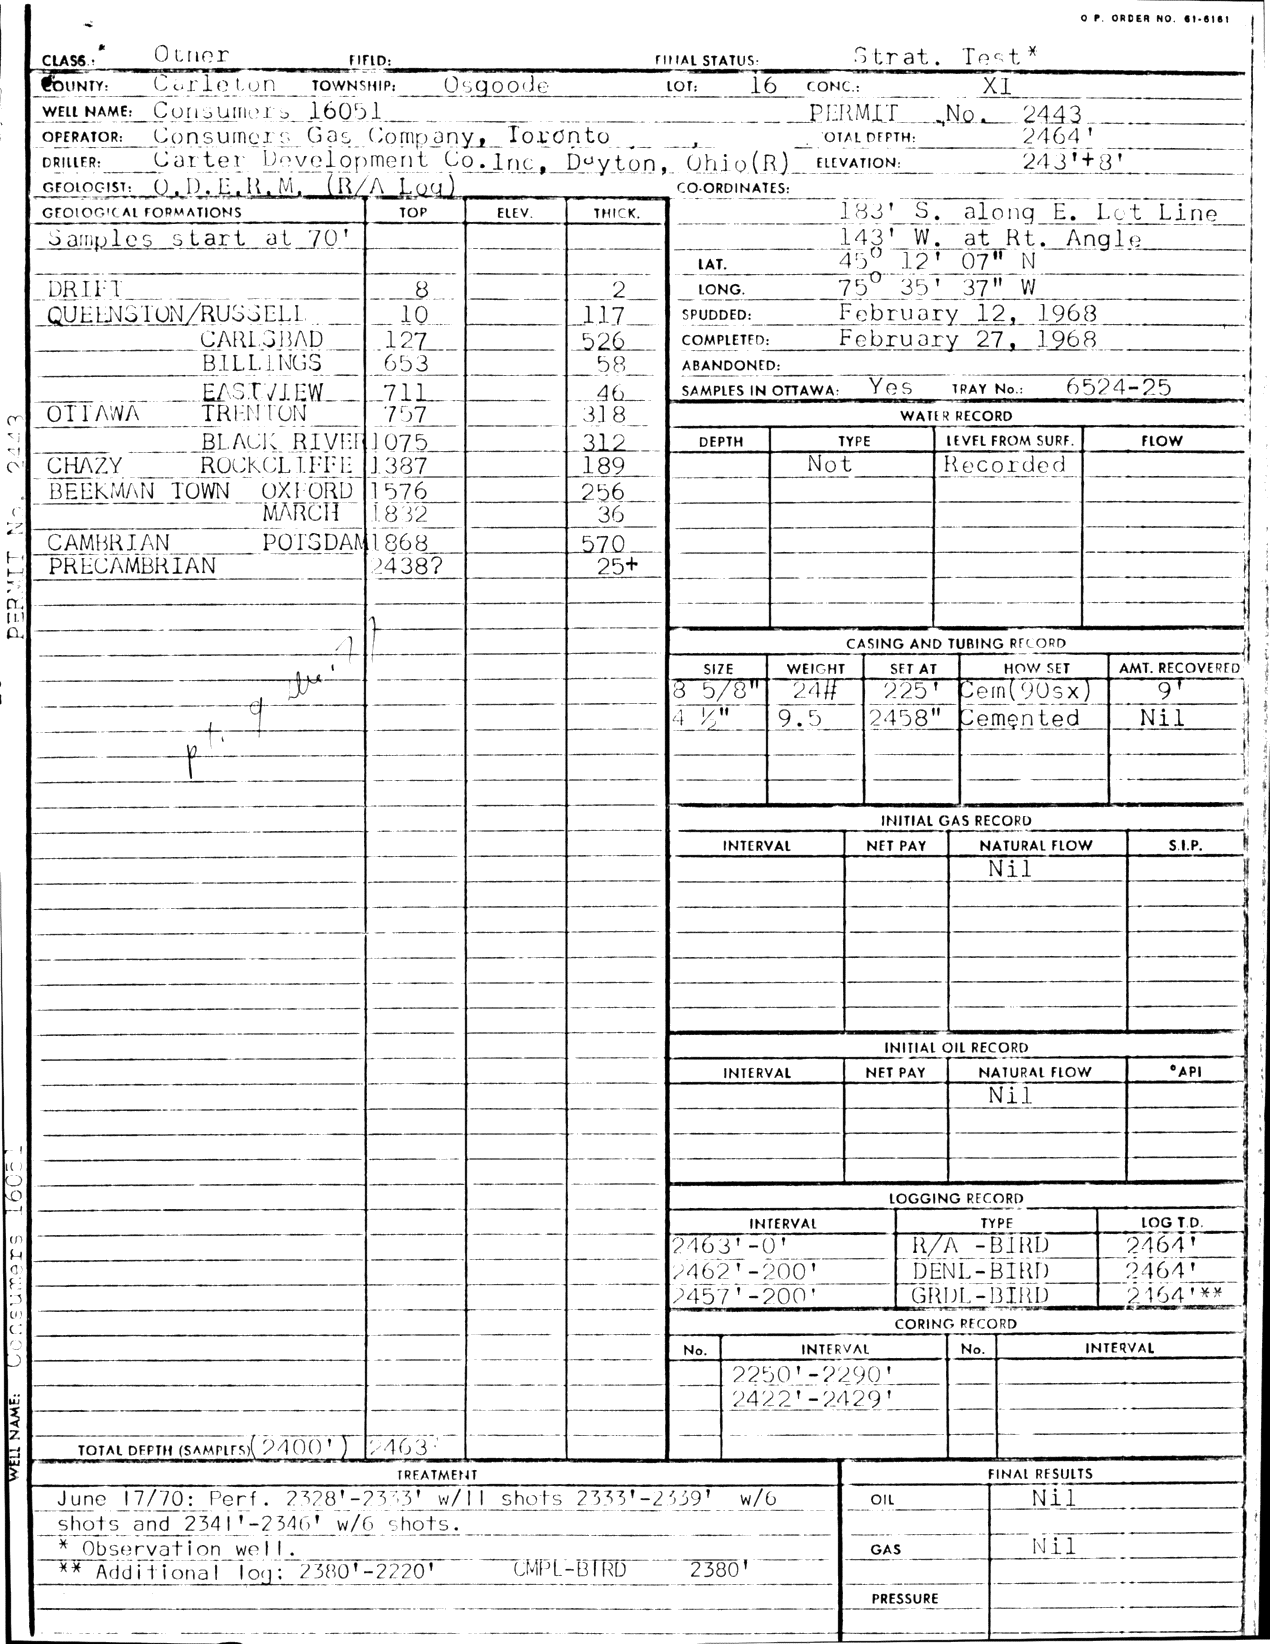 O P. ORDER NO. 61-6161
CLASS.: * Other FIELD: FINAL STATUS: Strat. Test*
COUNTY: Carleton TOWNSHIP: Osgoode LOT: 16 CONC.: XI
WELL NAME: Consumers 16051 PERMIT No. 2443
OPERATOR: Consumers Gas Company, Toronto TOTAL DEPTH: 2464'
DRILLER: Carter Development Co.Inc, Dayton, Ohio(R) ELEVATION: 243'+8'
GEOLOGIST: O.D.E.R.M. (R/A Log) CO-ORDINATES:
GEOLOGICAL FORMATIONS TOP ELEV. THICK.
Samples start at 70'
DRIFT 8 2
QUEENSTON/RUSSELL 10 117
CARLSBAD 127 526
BILLINGS 653 58
EASTVIEW 711 46
OTTAWA TRENTON 757 318
BLACK RIVER 1075 312
CHAZY ROCKCLIFFE 1387 189
BEEKMAN TOWN OXFORD 1576 256
MARCH 1832 36
CAMBRIAN POTSDAM 1868 570
PRECAMBRIAN 2438? 25+
pt. q
TOTAL DEPTH (SAMPLES) (2400') 2463'
183' S. along E. Lot Line
143' W. at Rt. Angle
LAT. 45° 12' 07" N
LONG. 75° 35' 37" W
SPUDDED: February 12, 1968
COMPLETED: February 27, 1968
ABANDONED:
SAMPLES IN OTTAWA: Yes TRAY No.: 6524-25
WATER RECORD
DEPTH TYPE LEVEL FROM SURF. FLOW
Not Recorded
CASING AND TUBING RECORD
SIZE WEIGHT SET AT HOW SET AMT. RECOVERED
8 5/8" 24# 225' Cem(90sx) 9'
4 ½" 9.5 2458" Cemented Nil
INITIAL GAS RECORD
INTERVAL NET PAY NATURAL FLOW S.I.P.
Nil
INITIAL OIL RECORD
INTERVAL NET PAY NATURAL FLOW °API
Nil
LOGGING RECORD
INTERVAL TYPE LOG T.D.
2463'-0' R/A -BIRD 2464'
2462'-200' DENL-BIRD 2464'
2457'-200' GRDL-BIRD 2464'**
CORING RECORD
No. INTERVAL No. INTERVAL
2250'-2290'
2422'-2429'
TREATMENT
June 17/70: Perf. 2328'-2333' w/11 shots 2333'-2339' w/6
shots and 2341'-2346' w/6 shots.
* Observation well.
** Additional log: 2380'-2220' CMPL-BIRD 2380'
FINAL RESULTS
OIL Nil
GAS Nil
PRESSURE
PERMIT No. 2443
WELL NAME: Consumers 16051